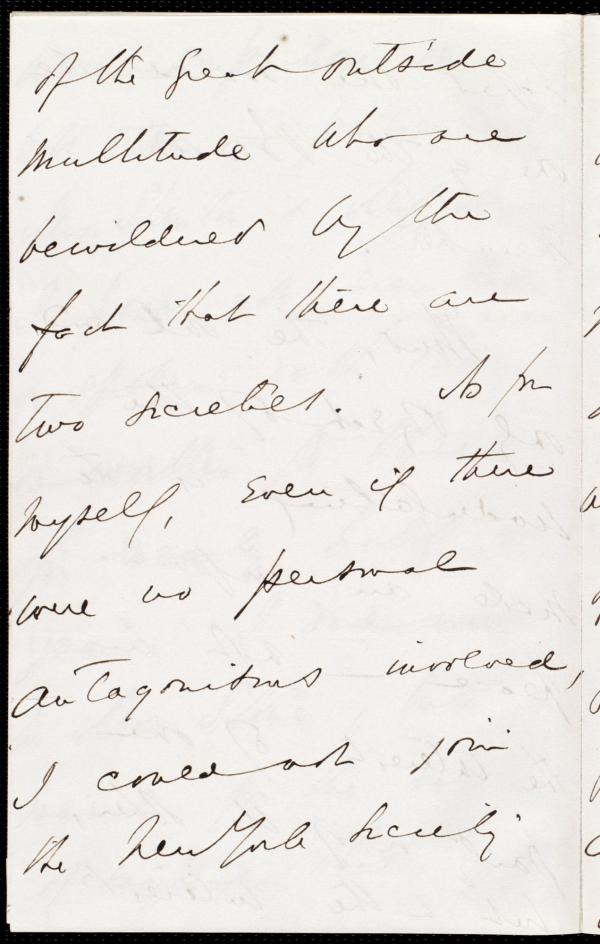 of the great outside
multitude who are
bewildered by the
fact that there are
two societies. As for
myself, even if there
were no personal
antagonisms involved,
I could not join
the New York Society